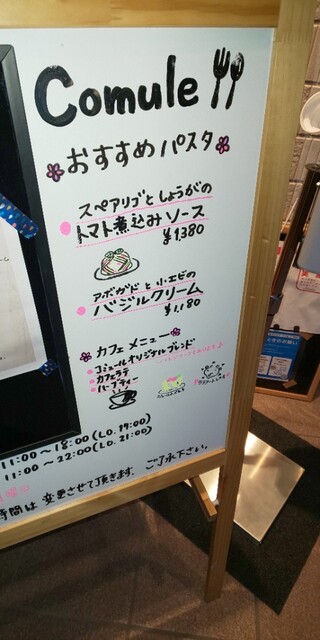 Comule
おすすめパスタ
スペアリブと しょうがの
トマト煮込みソース
¥1,380
アボガドと小エビの
バジルクリーム
¥1,180
カフェメニュー
コミュールオリジナルブレンド
カフェラテ
ハーブティー
11:00～18:00 (L.O. 17:00)
11:00～22:00 (L.O. 21:00)
時間は 変更させて頂きます。 ご了承下さい。